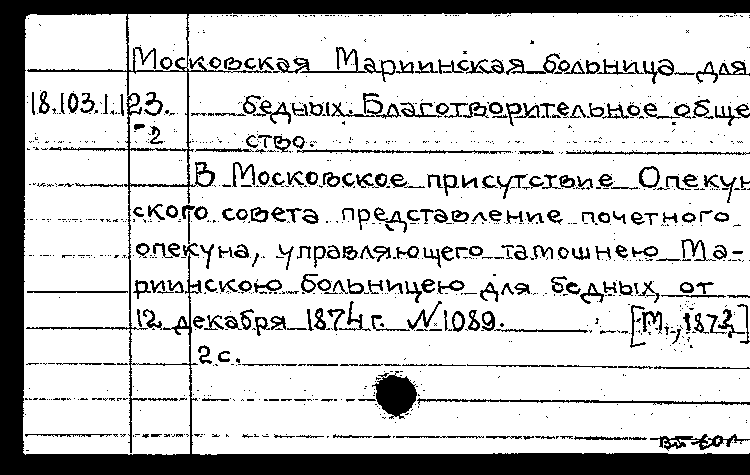 Московская Мариинская больница для
18.103.1.123. бедных. Благотворительное обще
-2 ство.
В Московское присутствие Опекун
ского совета представление почетного
опекуна, управляющего тамошнею Ма-
риинскою больницею для бедных, от
12 декабря 1874 г. №1089. [М., 1873]
2 с.